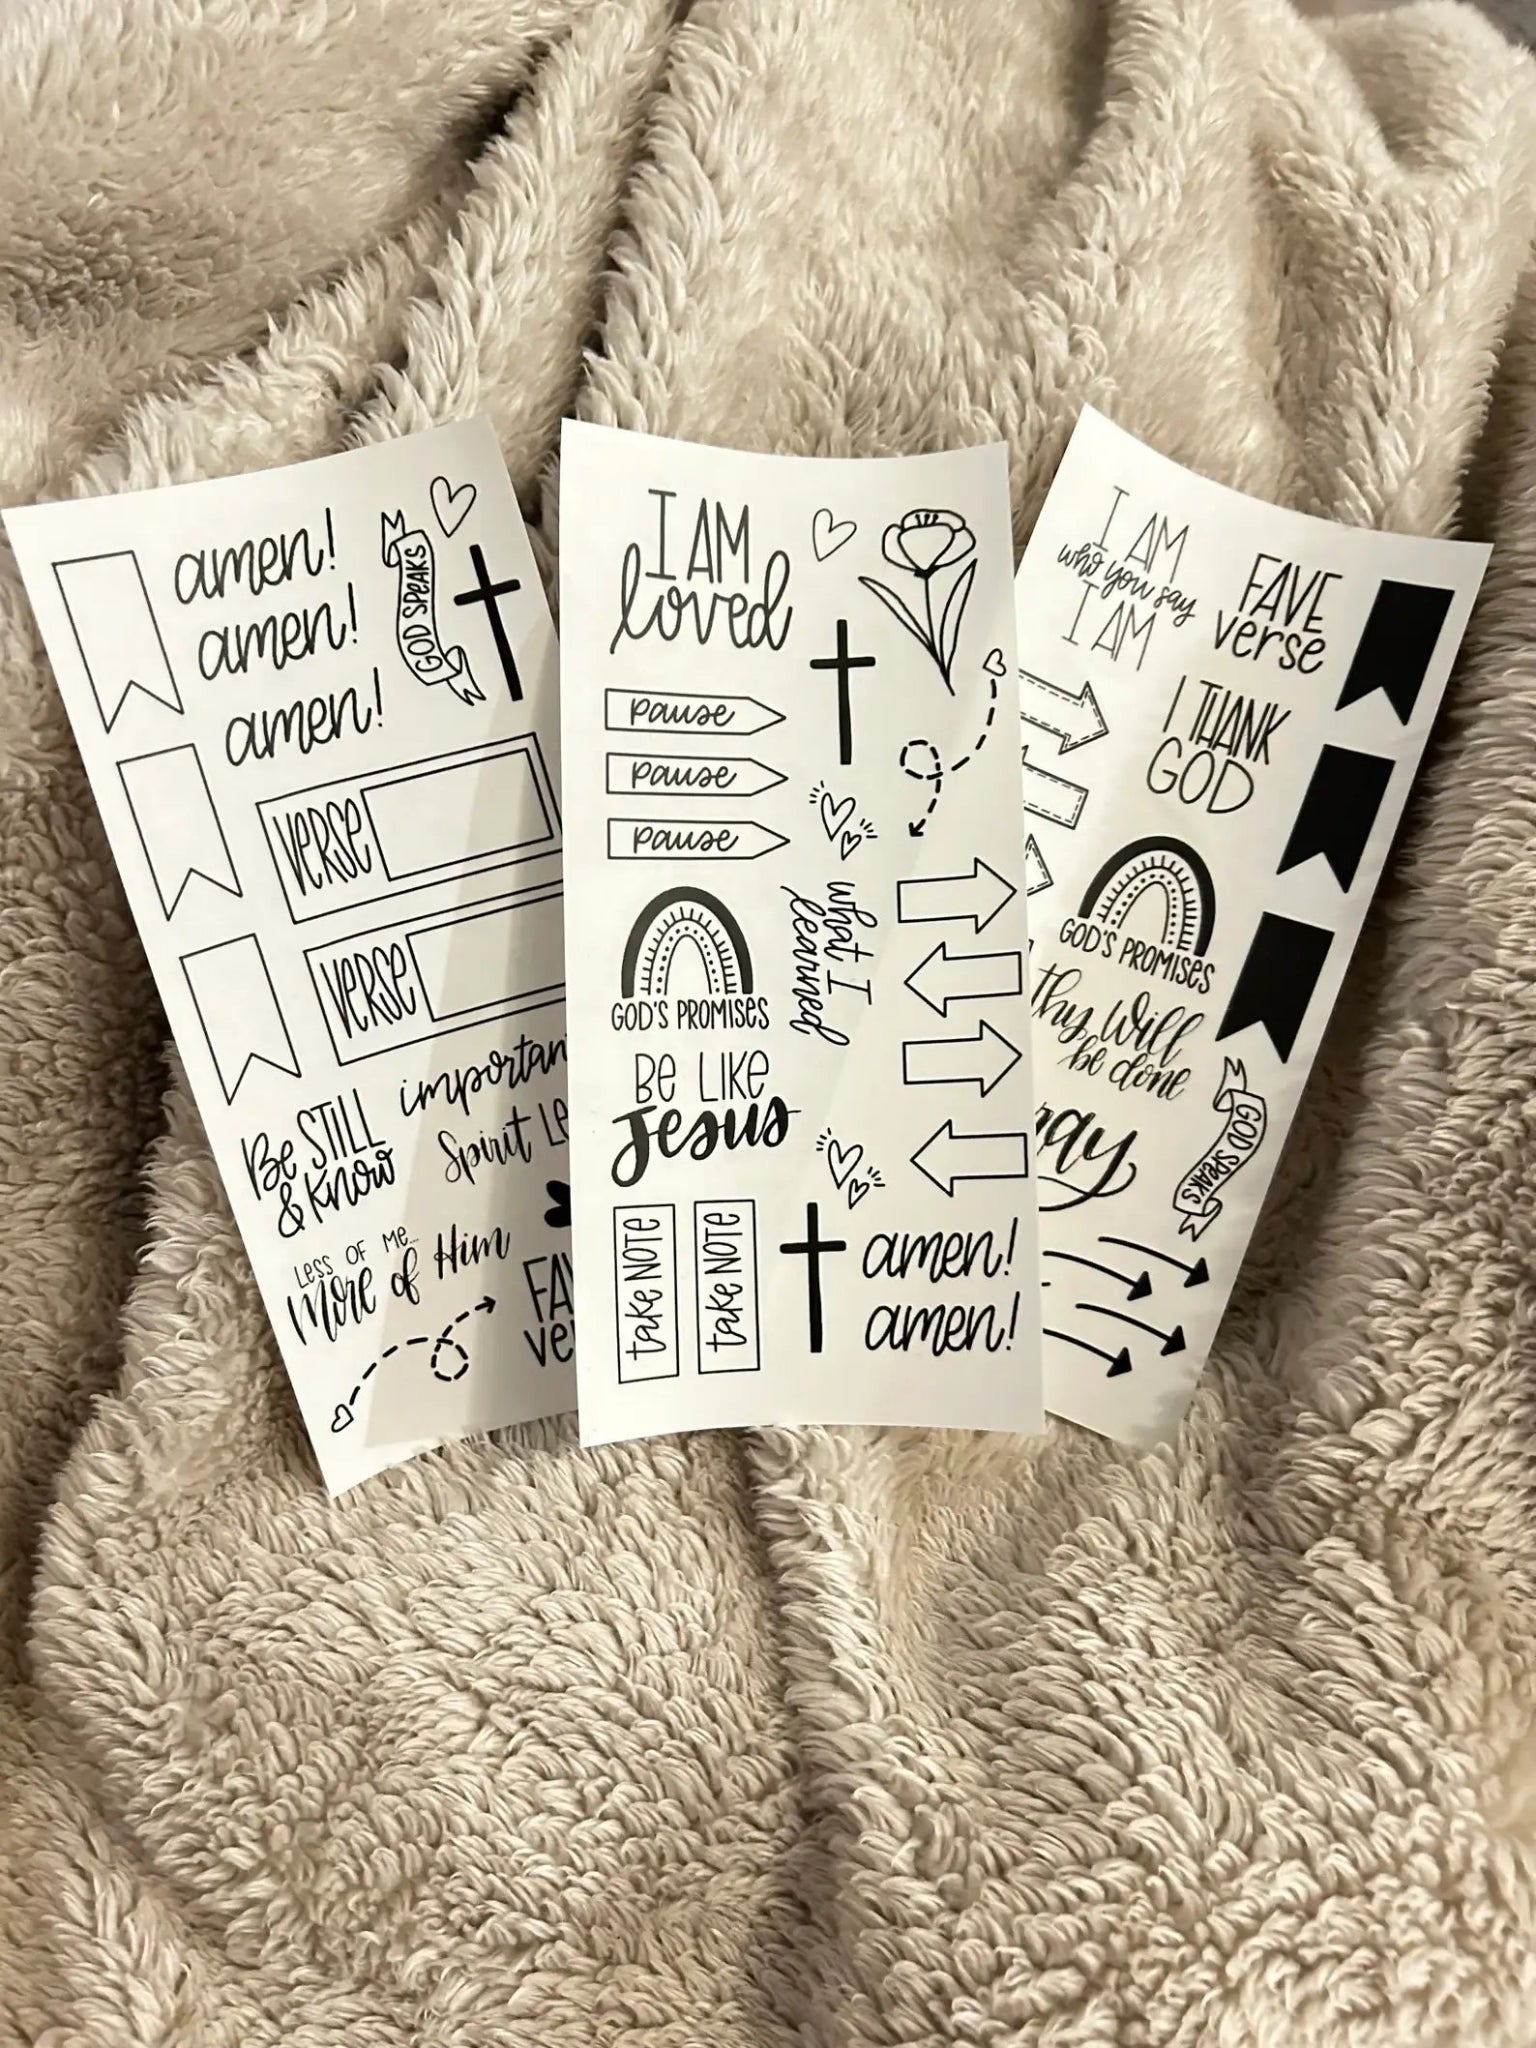 amen!
amen!
amen!
GOD SPEAKS
VERSE
VERSE
important
Be STILL
& Know
Spirit Le
LESS OF ME...
more of Him
FA
ve
I AM
loved
pause
pause
pause
what I
learned
GOD'S PROMISES
BE LIKE
Jesus
take NOTE
take NOTE
amen!
amen!
I AM
who you say
I AM
FAVE
verse
I THANK
GOD
GOD'S PROMISES
thy will
be done
ray
GOD SPEAKS